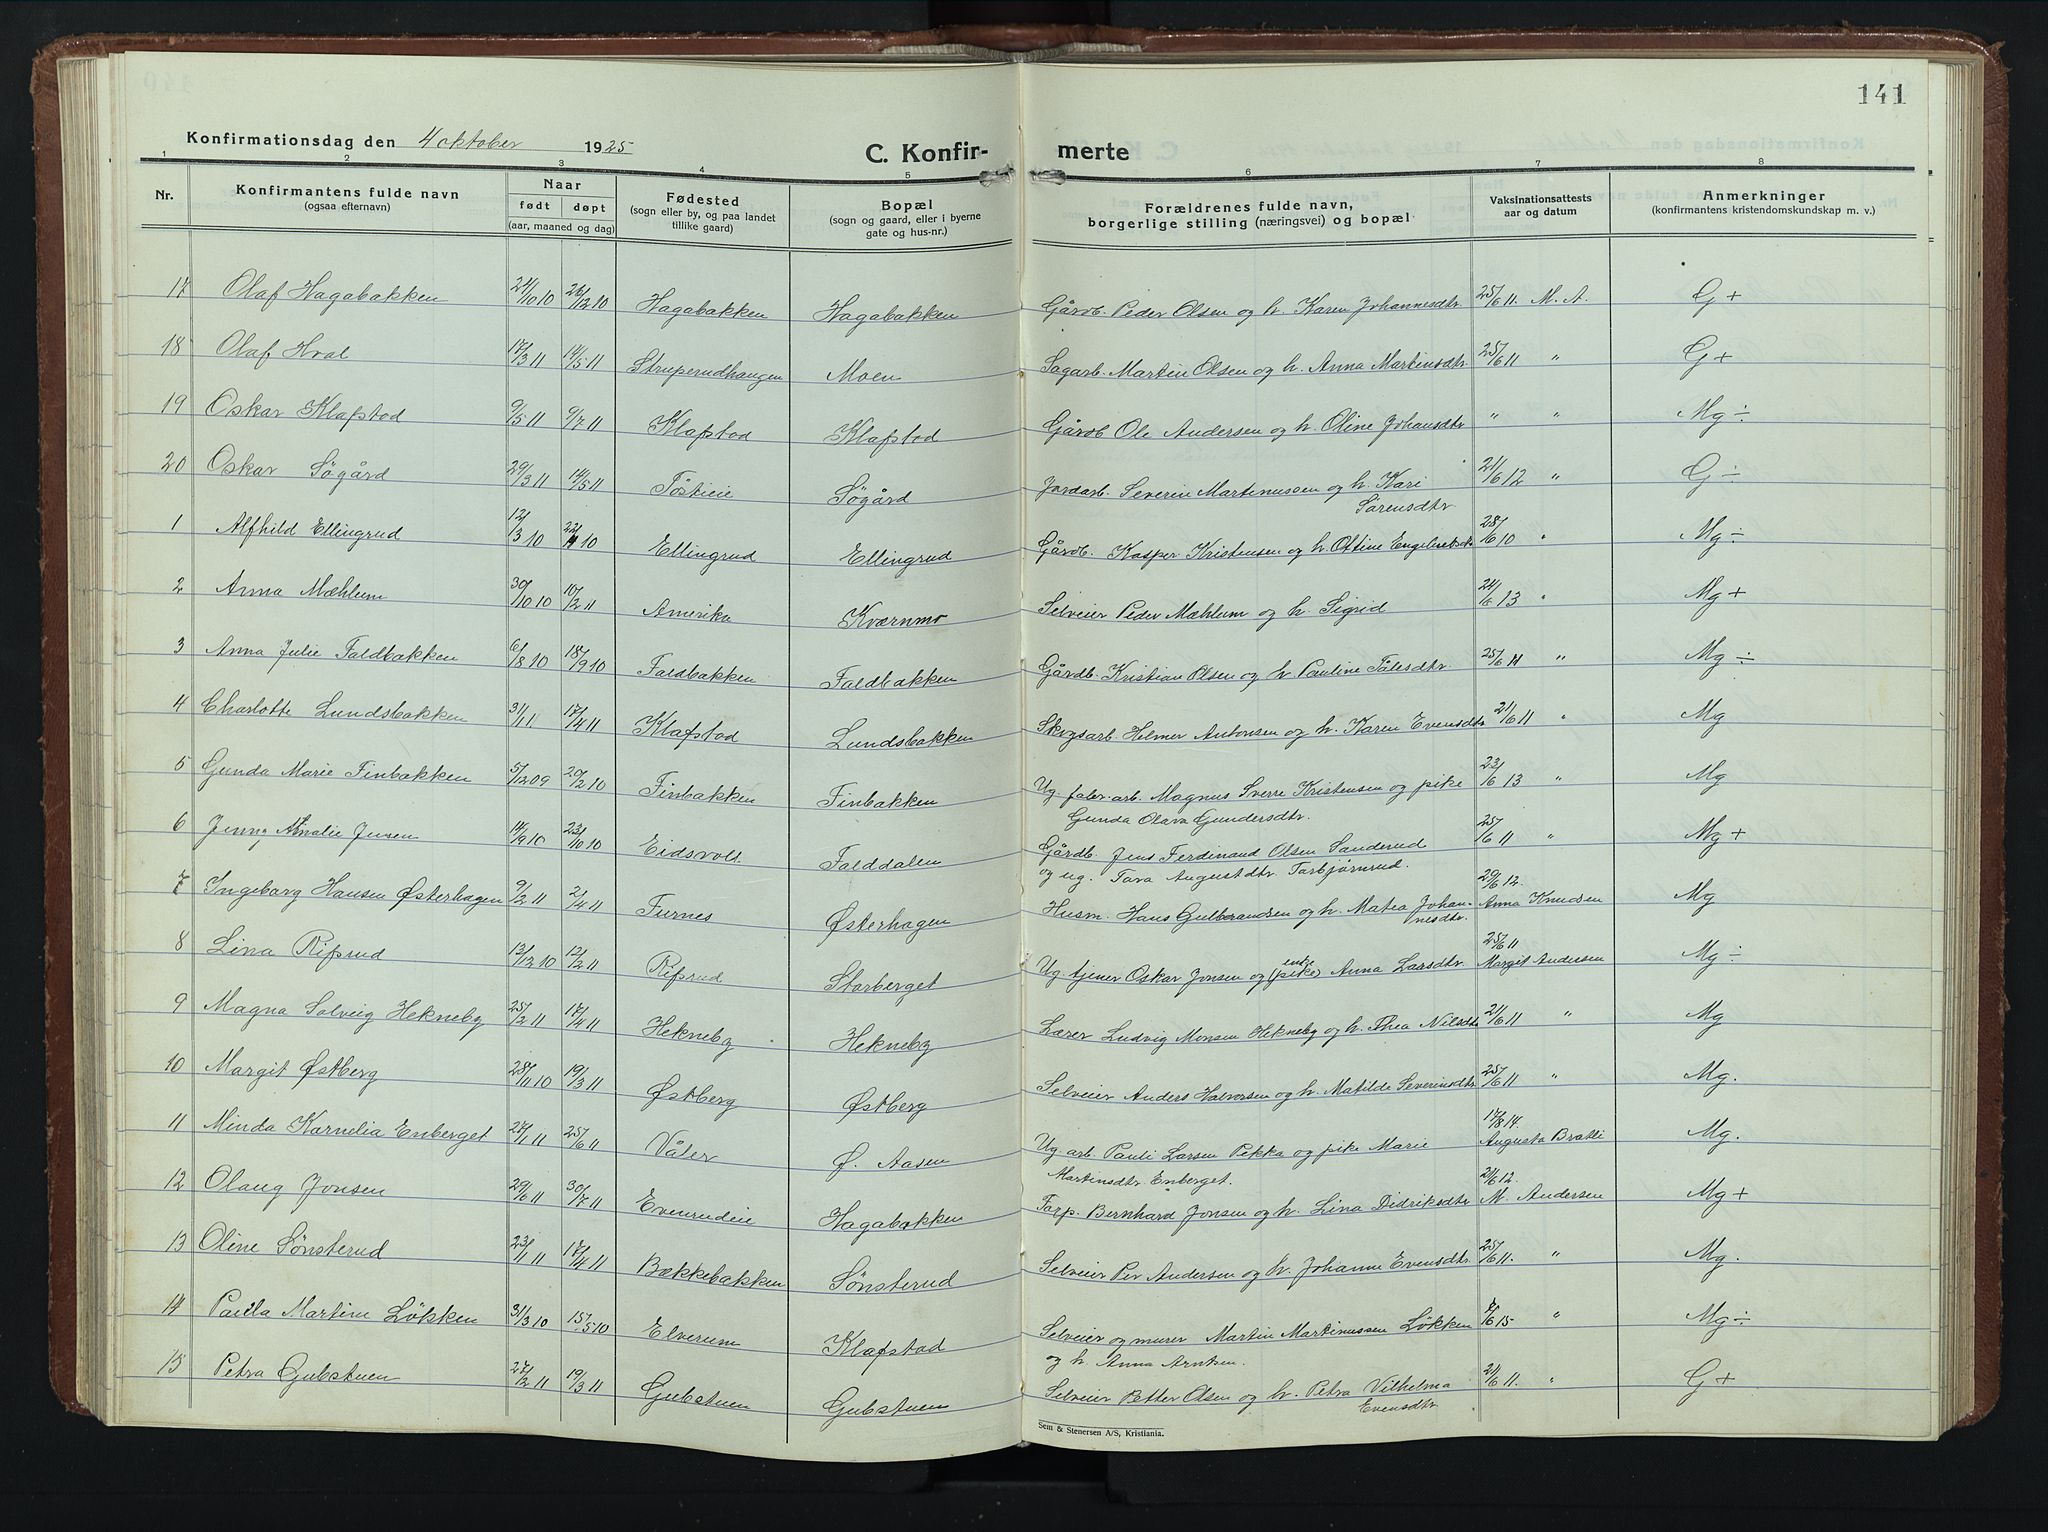 141
Konfirmationsdag den 4 oktober 1925
C. Konfir- merte
1 2 3 4 5 6 7 8
Nr. Konfirmantens fulde navn (ogsaa efternavn) Naar født døpt (aar, maaned og dag) Fødested (sogn eller by, og paa landet tillike gaard) Bopæl (sogn og gaard, eller i byerne gate og hus-nr.) Forældrenes fulde navn, borgerlige stilling (næringsvei) og bopæl Vaksinationsattests aar og datum Anmerkninger (konfirmantens kristendomskundskap m. v.)
17 Olaf Hagabakken 24/10 10 26/12 10 Hagabakken Hagabakken Gårdb. Peder Olsen og h. Karen Johannesdtr. 25/6 11. M. A. G +
18 Olaf Hval 17/3 11 14/5 11 Struperudhaugen Moen Sagarb. Martin Olsen og h. Anna Martinsdtr 25/6 11 " G +
19 Oskar Klafstad 9/5 11 9/7 11 Klafstad Klafstad Gårdb Ole Andersen og h. Oline Johansdtr " " Mg ÷
20 Oskar Søgård 29/3 11 14/5 11 Søgård Jordarb. Severin Martinussen og h. Kari 21/6 12 " G ÷
Sørensdtr
1 Alfhild Ellingrud 12/3 10 10 Ellingrud Ellingrud Gårdb. Kasper Kristensen og h. Ottine 28/6 10 " Mg ÷
2 Anna Mæhlum 30/10 10 10/2 11 Amerika Kværnmo Selveier Peder Mæhlum og h. Sigrid 24/6 13 " Mg +
3 Anna Julie Faldbakken 6/8 10 18/9 10 Faldbakken Faldbakken Gårdb. Kristian Olsen og h. Pauline Tålesdtr 25/6 11 " Mg ÷
4 Charlotte Lundsbakken 31/1 11 17/4 11 Klafstad Lundsbakken Skogsarb. Helmer Antonsen og h. Karen Evensdtr 21/6 11 " Mg
5 Gunda Marie Finbakken 5/12 09 20/2 10 Finbakken Finbakken Ug. fabr. arb. Magnus Sverre Kristensen og pike 23/6 13 " Mg
Gunda Olava Gundersdtr.
6 Jenny Amalie Jensen 14/9 10 23/10 10 Eidsvoll Falddalen Gårdb. Jens Ferdinand Olsen Sanderud 25/6 11 " Mg +
og ug. Tora Augustdtr Torbjørnrud.
7 Ingeborg Hansen Østerhagen 9/2 11 2/4 11 Furnes Østerhagen Husm. Hans Gulbrandsen og h. Matea Johan- 29/6 12. Anna Knudsen Mg
nesdtr.
8 Lina Ripsrud 13/12 10 12/2 11 Ripsrud Storberget Ug tjener Oskar Jonsen og (pike) enke Anna Larsdtr 25/6 11 Margit Andersen Mg ÷
9 Magna Solveig Hekneby 25/2 11 17/4 11 Hekneby Hekneby Lærer Ludvig Monsen Hekneby og h. Thea Nilsdtr 21/6 11 " Mg
10 Margit Østberg 28/11 10 19/3 11 Østberg Østberg Selveier Anders Halvorsen og h. Matilde Severinsdtr 25/6 11 " Mg.
11 Minda Kornelia Enberget 27/1 11 25/6 11 Våler Ø. Aasen Ug arb. Pauli Larsen Pekka og pike Marie 17/8 14. Augusta Bratli Mg.
Martinsdtr Enberget.
12 Olaug Jonsen 29/6 11 30/7 11 Evenrudeie Hagabakken Torp. Bernhard Jonsen og h. Lina Didriksdtr 21/6 12. M. Andersen Mg +
13 Oline Sønsterud 23/1 11 17/4 11 Bækkebakken Sønsterud Selveier Per Andersen og h. Johanne Evensdtr. 25/6 11. " Mg.
14 Paula Martine Løkken 31/3 10 15/5 10 Elverum Klafstad Selveier og murer Martin Martinussen Løkken 15 " Mg ÷
og h. Anna Arntsen.
15 Petra Gubstuen 27/2 11 19/3 11 Gubstuen Gubstuen Selveier Petter Olsen og h. Petra Vilhelma 21/6 11. " G +
Evensdtr
Sem & Stenersen A/S, Kristiania.